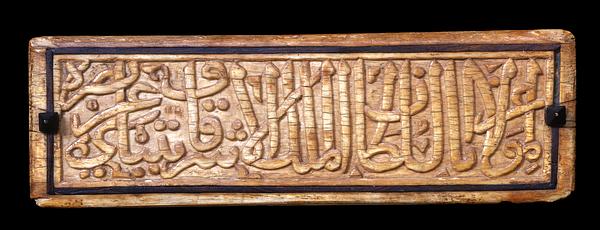 عز لمولانا السلطان الملك الاشرف قايتباي عز نصره